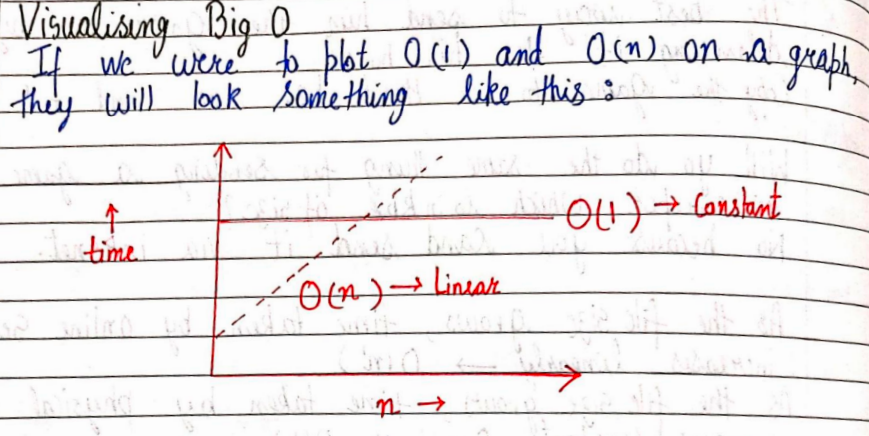 Visualising Big O
If we were to plot O(1) and O(n) on a graph,
they will look something like this :
O(1) → Constant
↑
time
O(n) → Linear
n →